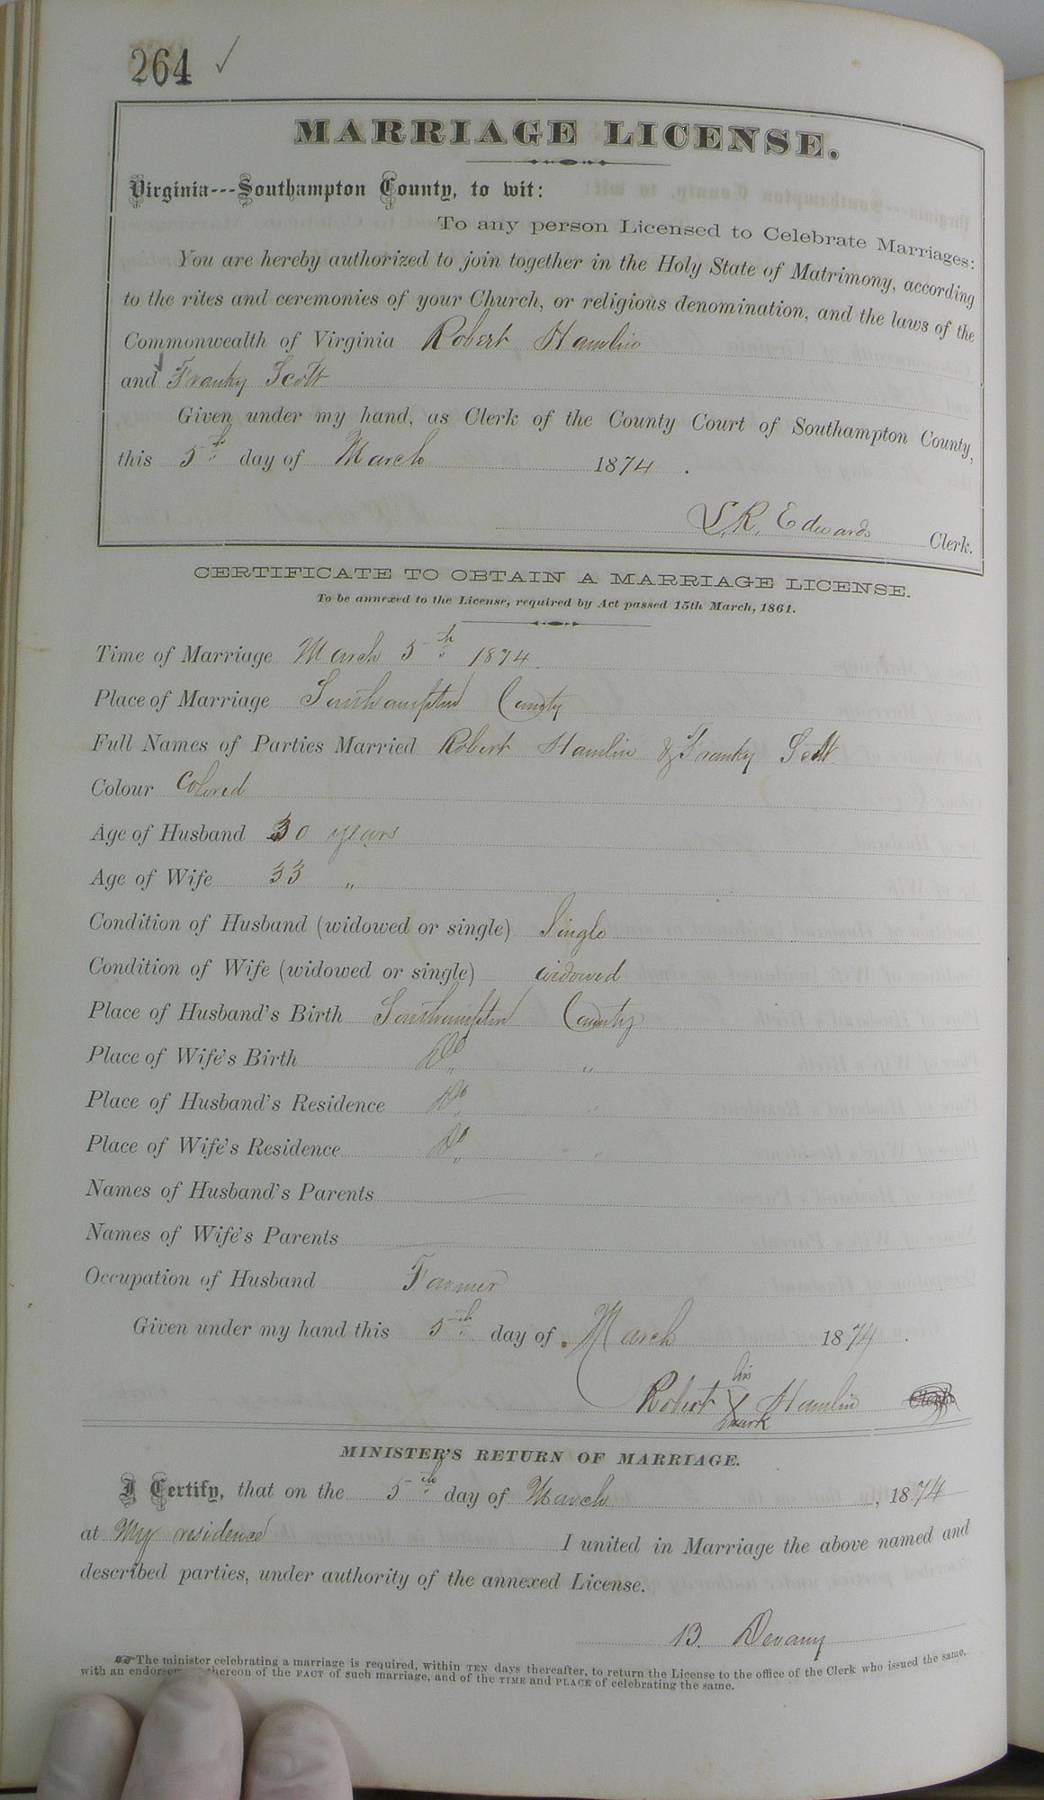 264 ✓
MARRIAGE LICENSE.
Virginia---Southampton County, to wit:
To any person Licensed to Celebrate Marriages:
You are hereby authorized to join together in the Holy State of Matrimony, according
to the rites and ceremonies of your Church, or religious denomination, and the laws of the
Commonwealth of Virginia Robert Hamlin
and Franky Scott
Given under my hand, as Clerk of the County Court of Southampton County,
this 5th day of March 1874.
L. R. Edwards Clerk.
CERTIFICATE TO OBTAIN A MARRIAGE LICENSE.
To be annexed to the License, required by Act passed 15th March, 1861.
Time of Marriage March 5th 1874
Place of Marriage Southampton County
Full Names of Parties Married Robert Hamlin & Franky Scott
Colour Colored
Age of Husband 30 years
Age of Wife 33 "
Condition of Husband (widowed or single) Single
Condition of Wife (widowed or single) widowed
Place of Husband's Birth Southampton County
Place of Wife's Birth Do "
Place of Husband's Residence Do "
Place of Wife's Residence Do "
Names of Husband's Parents
Names of Wife's Parents
Occupation of Husband Farmer
Given under my hand this 5th day of March 1874.
Robert his X mark Hamlin
MINISTER'S RETURN OF MARRIAGE.
I Certify, that on the 5th day of March, 1874
at My residence I united in Marriage the above named and
described parties, under authority of the annexed License.
B. Devany
The minister celebrating a marriage is required, within TEN days thereafter, to return the License to the office of the Clerk who issued the same,
with an thereon of the FACT of such marriage, and of the TIME and PLACE of celebrating the same.